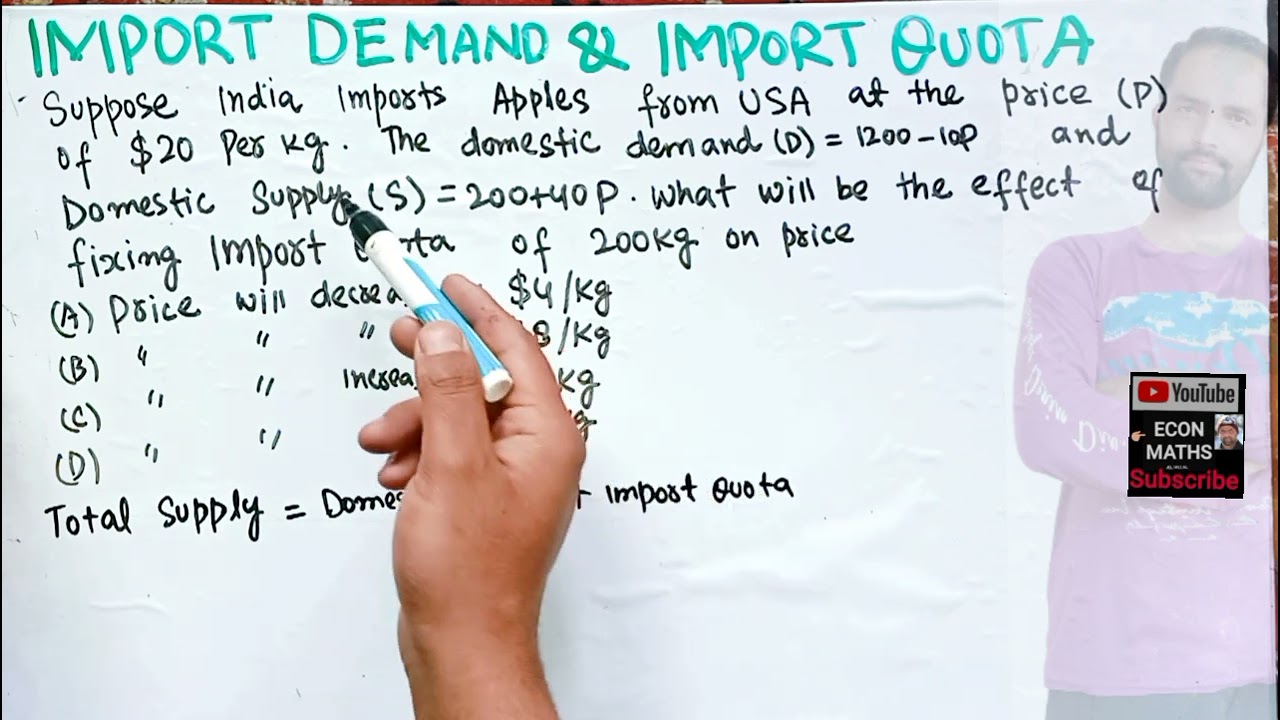 IMPORT DEMAND & IMPORT QUOTA
Suppose India Imports Apples from USA at the price (P)
of $20 Per kg. The domestic demand (D) = 1200-10P and
Domestic Supply (S) = 200+40P. What will be the effect of
fixing Import of 200kg on price
(A) Price will $4/kg
(B) " " " 8/kg
(C) " " kg
(D) " "
Total Supply = Import Quota
YouTube
ECON
MATHS
Subscribe